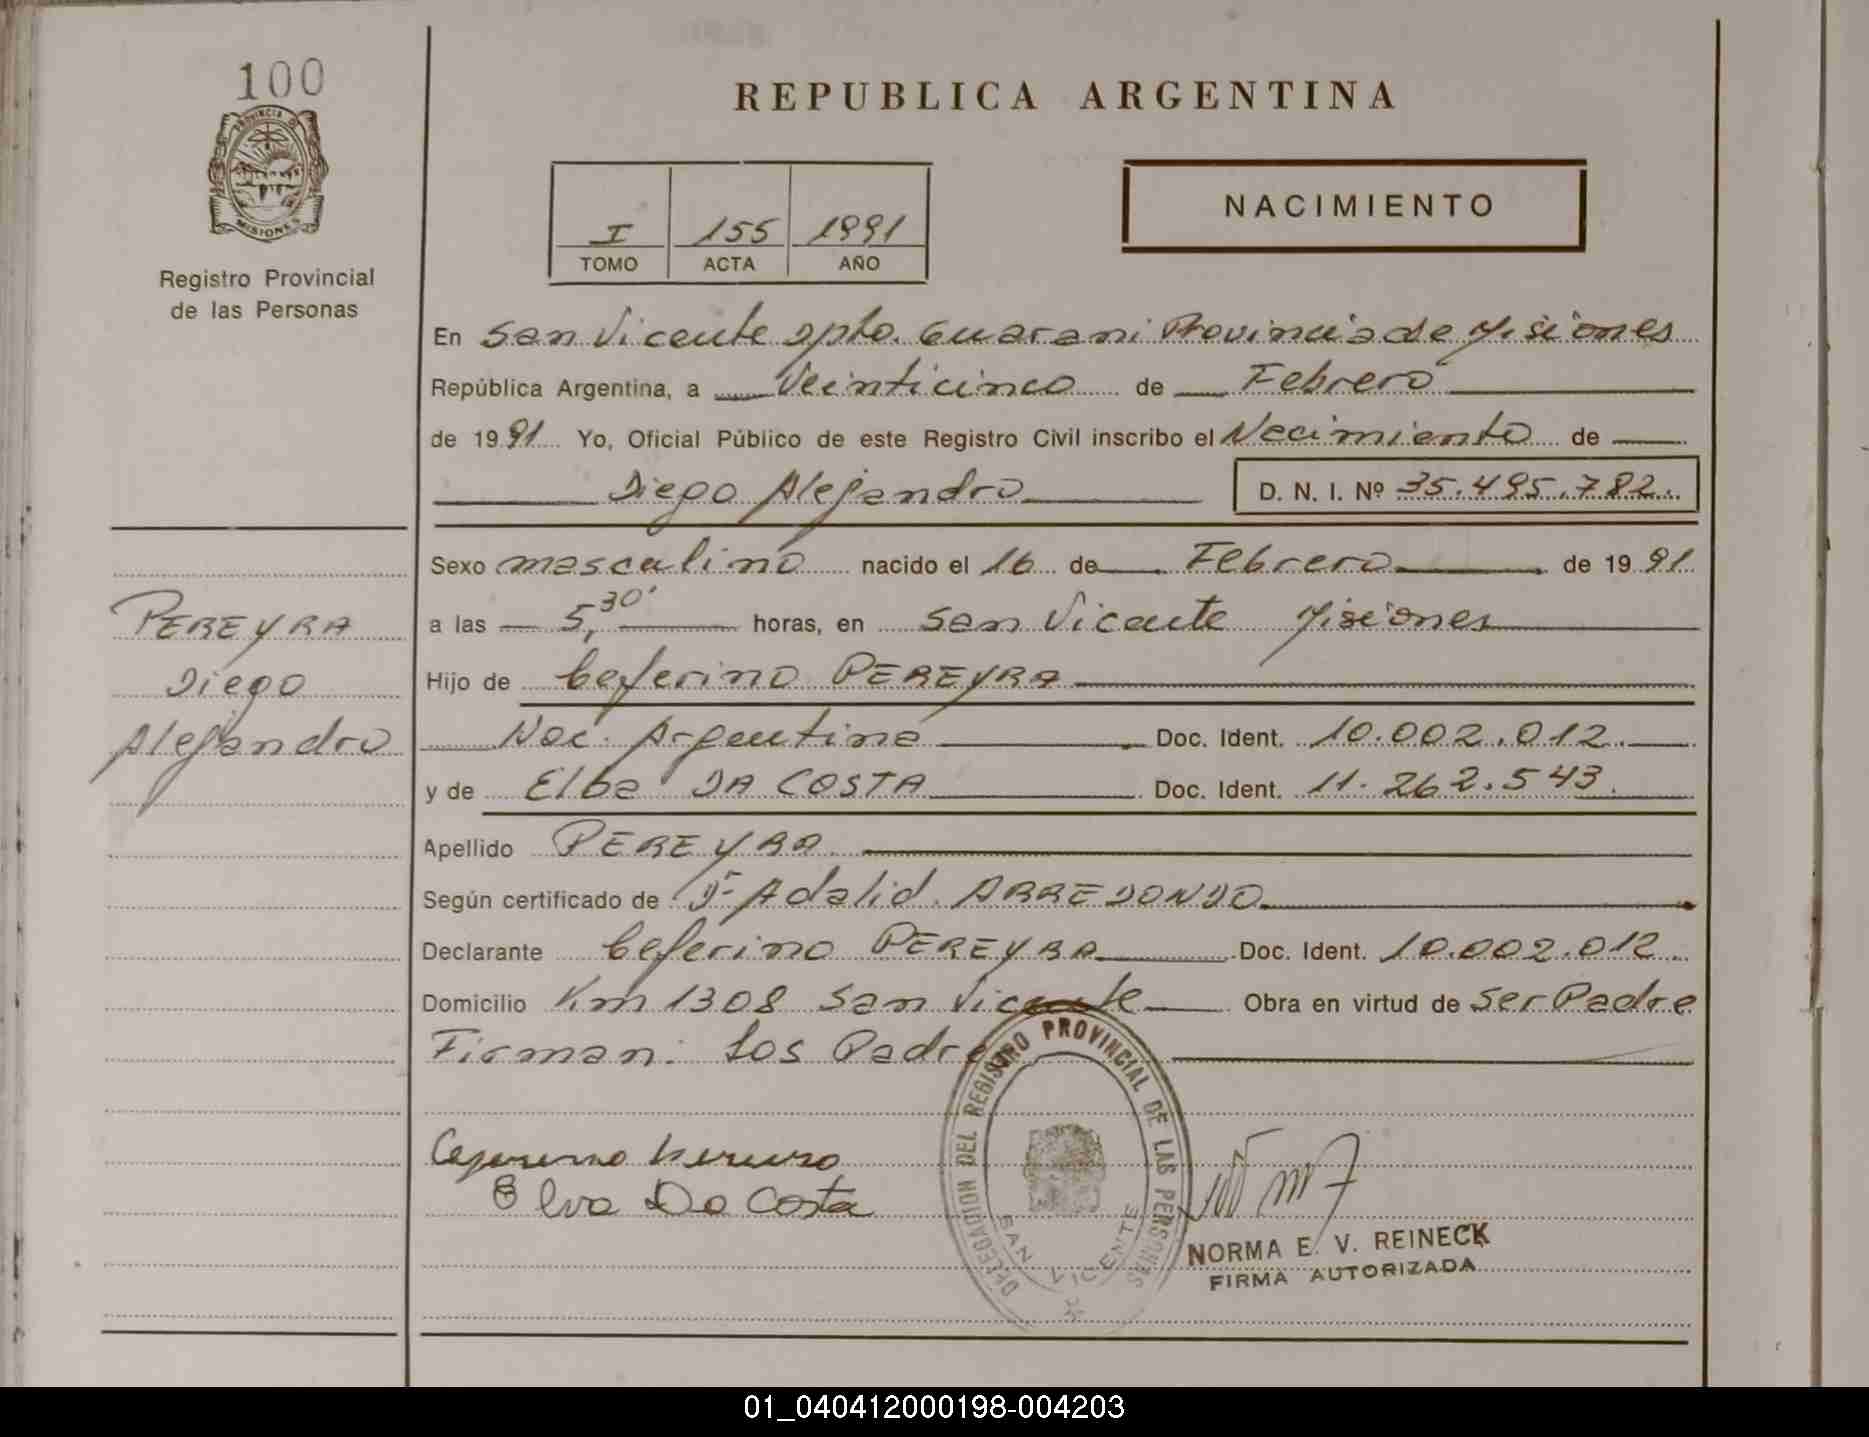 100
PROVINCIA DE
MISIONES
Registro Provincial
de las Personas
PEREYRA
Diego
Alejandro
REPUBLICA ARGENTINA
NACIMIENTO
I 155 1991
TOMO ACTA AÑO
En San Vicente Dpto. Guarani Provincia de Misiones
República Argentina, a Veinticinco de Febrero
de 1991 Yo, Oficial Público de este Registro Civil inscribo el Nacimiento de
Diego Alejandro D. N. I. Nº 35.495.782.
Sexo masculino nacido el 16 de Febrero de 1991
a las 5,30' horas, en San Vicente Misiones
Hijo de Ceferino PEREYRA
Nac. Argentina Doc. Ident. 10.002.012.
y de Elba DA COSTA Doc. Ident. 11.262.543.
Apellido PEREYRA
Según certificado de Dr Adalid ARREDONDO
Declarante Ceferino PEREYRA Doc. Ident. 10.002.012
Domicilio Km 1308 San Vicente Obra en virtud de Ser Padre
Firman: Los Padre
Elva Da Costa
DELEGACION DEL REGISTRO PROVINCIAL DE LAS PERSONAS
SAN VICENTE
NORMA E. V. REINECK
FIRMA AUTORIZADA
01_040412000198-004203